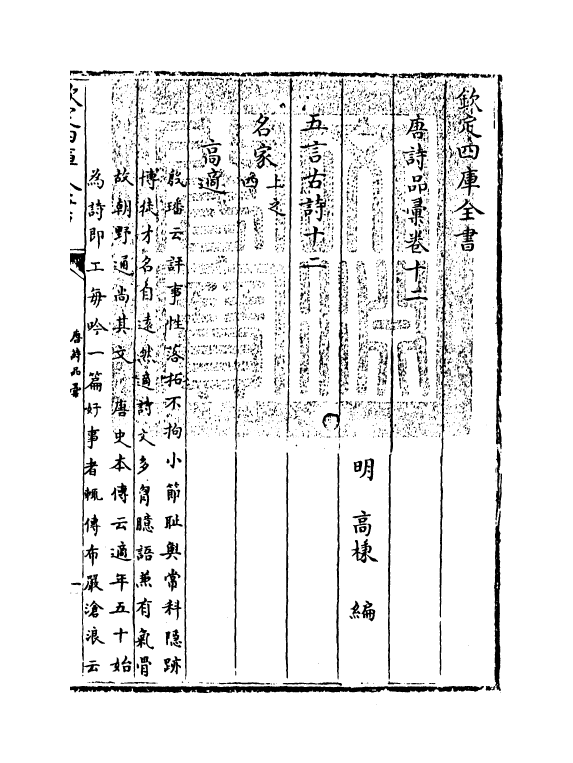 欽定四庫全書
唐詩品彙卷十二
明 高棅 編
五言古詩十二
名家上之西
高適
殷璠云評事性落拓不拘小節耻與常科隱跡
博徒才名自遠然適詩文多胷臆語兼有氣骨
故朝野通尚其文 唐史本傳云適年五十始
為詩即工每吟一篇好事者輒傳布嚴滄浪云
唐詩品彙
一